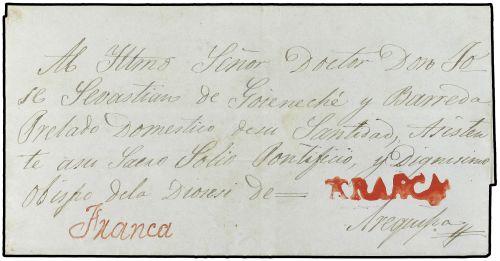 Al Yltmo Señor Doctor Don Jo
se Sevastian de Goieneche y Barreda
Prelado Domestico de su Santidad, Asisten
te a su Sacro Solio Pontificio, y Dignisimo
Obispo de la Diocesi de =
Arequipa
Franca